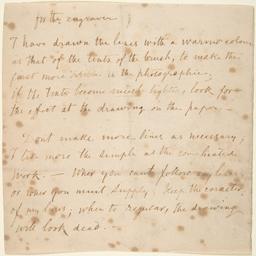 for the engraver
I have drawn the lines with a warmer colour
as that of the tints of the brush, to make the
part more visible in the photographie,
if the tints become much lighter, look for
the effect at the drawing on the paper. —
Dont make more lines as necessary,
I like more the simple as the complicated
work. — Where you can't follow my lines
or tones you must supply, keep the character
of my lines; when to regular, the drawing
will look dead. —